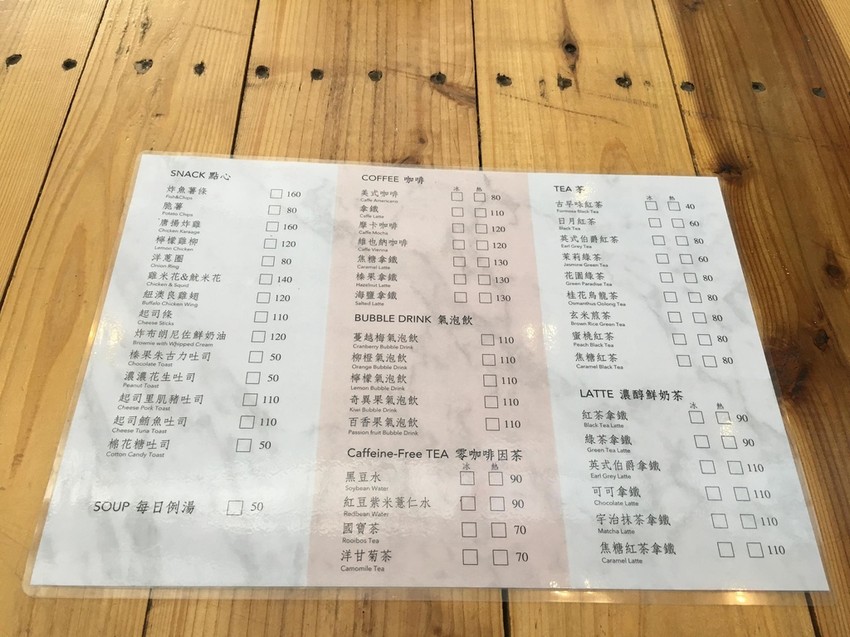 SNACK 點心
炸魚薯條 160
Fish&Chips
脆薯 80
Potato Chips
唐揚炸雞 160
Chicken Karaage
檸檬雞柳 120
Lemon Chicken
洋蔥圈 80
Onion Ring
雞米花&魷米花 140
Chicken & Squid
紐澳良雞翅 120
Buffalo Chicken Wing
起司條 110
Cheese Sticks
炸布朗尼佐鮮奶油 120
Brownie with Whipped Cream
榛果朱古力吐司 50
Chocolate Toast
濃濃花生吐司 50
Peanut Toast
起司里肌豬吐司 110
Cheese Pork Toast
起司鮪魚吐司 110
Cheese Tuna Toast
棉花糖吐司 50
Cotton Candy Toast
SOUP 每日例湯 50
COFFEE 咖啡
冰 熱
美式咖啡 80
Caffe Americano
拿鐵 110
Caffe Latte
摩卡咖啡 120
Caffe Mocha
維也納咖啡 120
Caffe Vienna
焦糖拿鐵 130
Caramel Latte
榛果拿鐵 130
Hazelnut Latte
海鹽拿鐵 130
Salted Latte
BUBBLE DRINK 氣泡飲
蔓越梅氣泡飲 110
Cranberry Bubble Drink
柳橙氣泡飲 110
Orange Bubble Drink
檸檬氣泡飲 110
Lemon Bubble Drink
奇異果氣泡飲 110
Kiwi Bubble Drink
百香果氣泡飲 110
Passion fruit Bubble Drink
Caffeine-Free TEA 零咖啡因茶
冰 熱
黑豆水 90
Soybean Water
紅豆紫米薏仁水 90
Redbean Water
國寶茶 70
Rooibos Tea
洋甘菊茶 70
Camomile Tea
TEA 茶
冰 熱
古早味紅茶 40
Formosa Black Tea
日月紅茶 60
Black Tea
英式伯爵紅茶 80
Earl Grey Tea
茉莉綠茶 60
Jasmine Green Tea
花園綠茶 80
Green Paradise Tea
桂花烏龍茶 80
Osmanthus Oolong Tea
玄米煎茶 80
Brown Rice Green Tea
蜜桃紅茶 80
Peach Black Tea
焦糖紅茶 80
Caramel Black Tea
LATTE 濃醇鮮奶茶
冰 熱
紅茶拿鐵 90
Black Tea Latte
綠茶拿鐵 90
Green Tea Latte
英式伯爵拿鐵 110
Earl Grey Latte
可可拿鐵 110
Chocolate Latte
宇治抹茶拿鐵 110
Matcha Latte
焦糖紅茶拿鐵 110
Caramel Latte